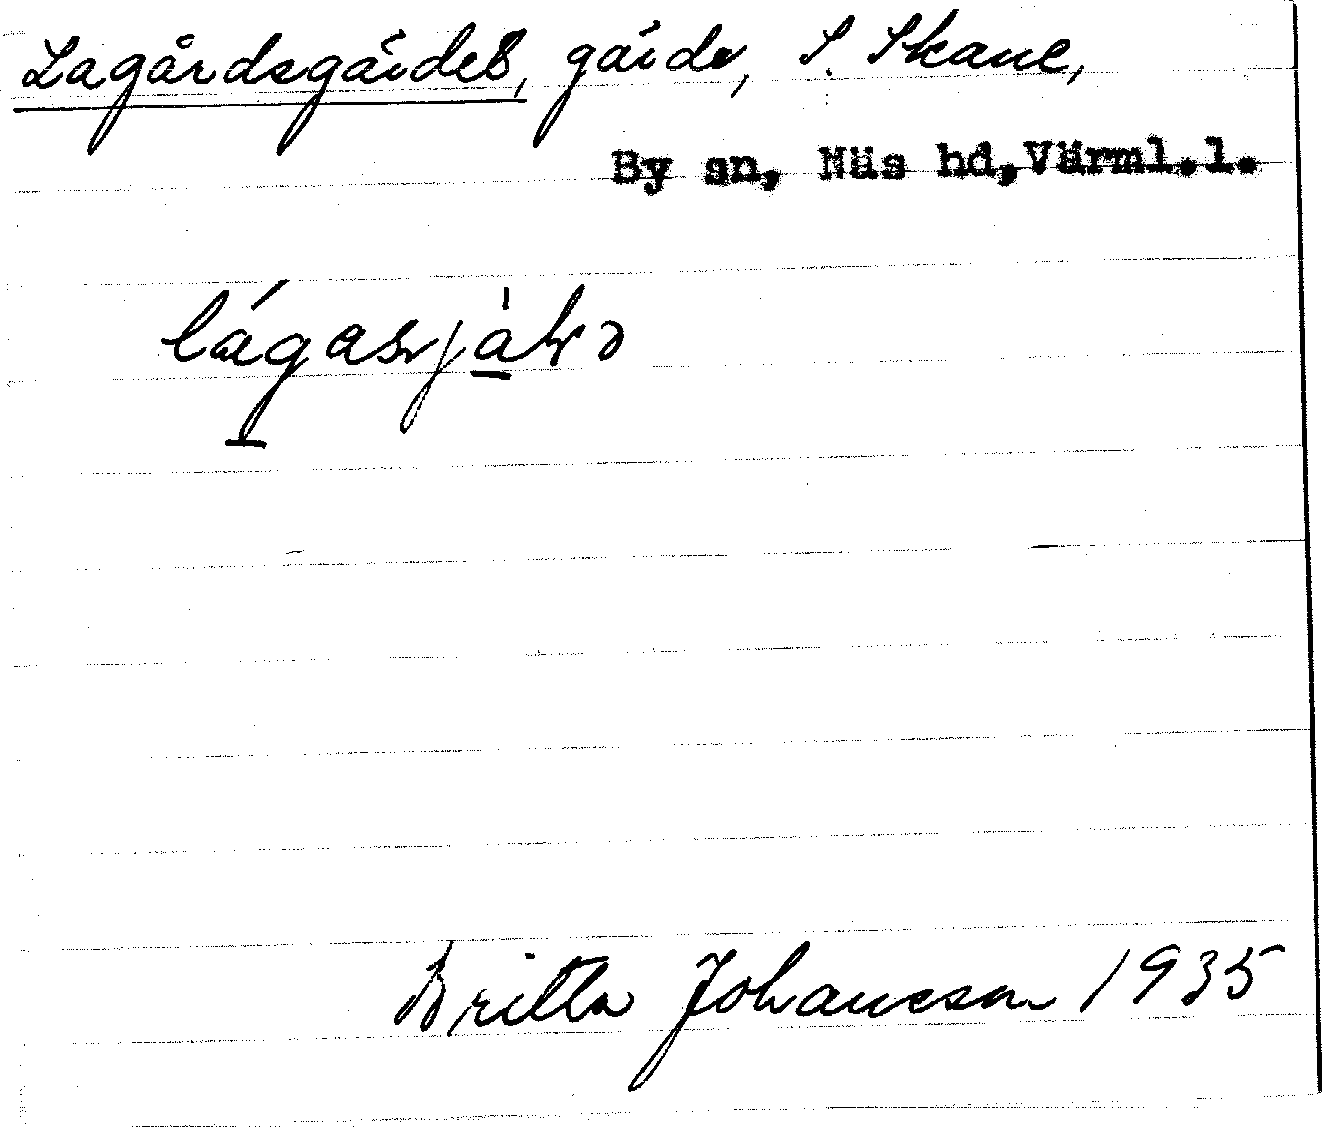 Lagårdsgärdet, gärde, S. Skane,
By sn, Näs hd, Värml.l.
Britta Johansson 1935